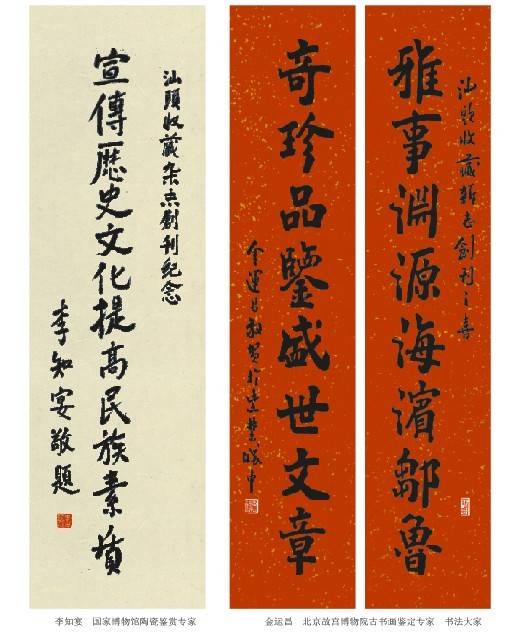 汕頭收藏雜志創刊之喜
雅事淵源海濱鄒魯
奇珍品鑒盛世文章
金運昌敬賀
汕頭收藏杂志創刊紀念
宣傳歷史文化提高民族素質
李知宴敬題
李知宴 国家博物馆陶瓷鉴赏专家
金运昌 北京故宫博物院古书画鉴定专家 书法大家